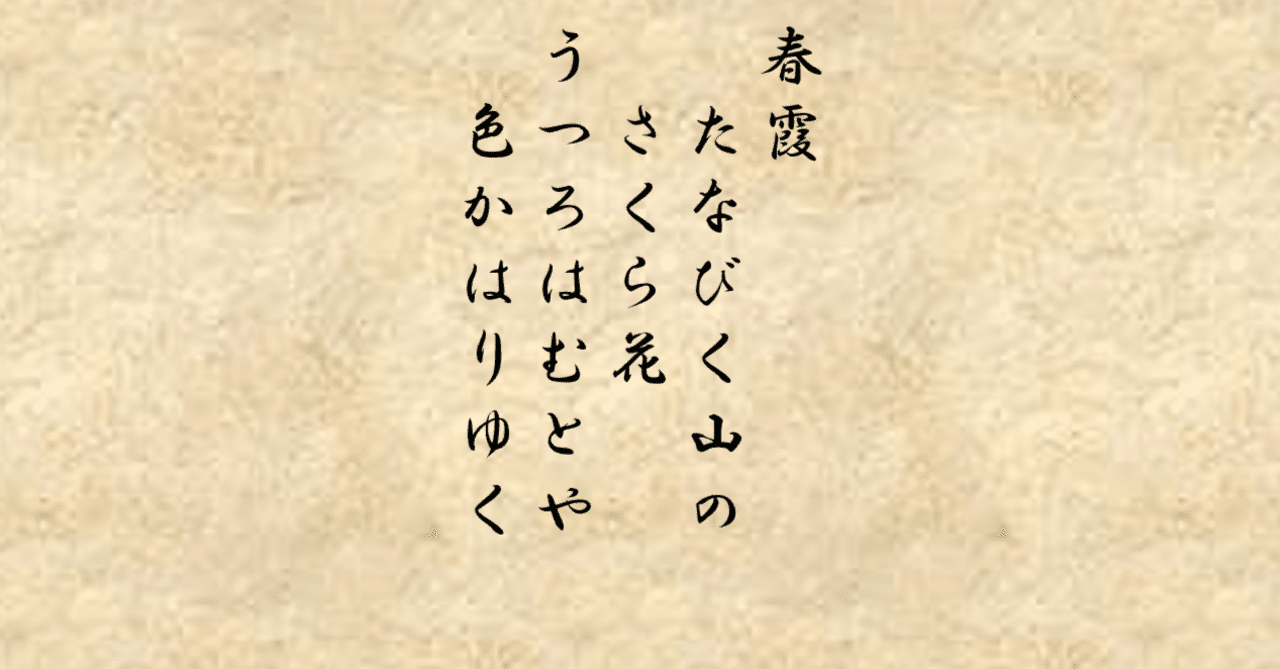 春霞
たなびく山の
さくら花
うつろはむとや
色かはりゆく